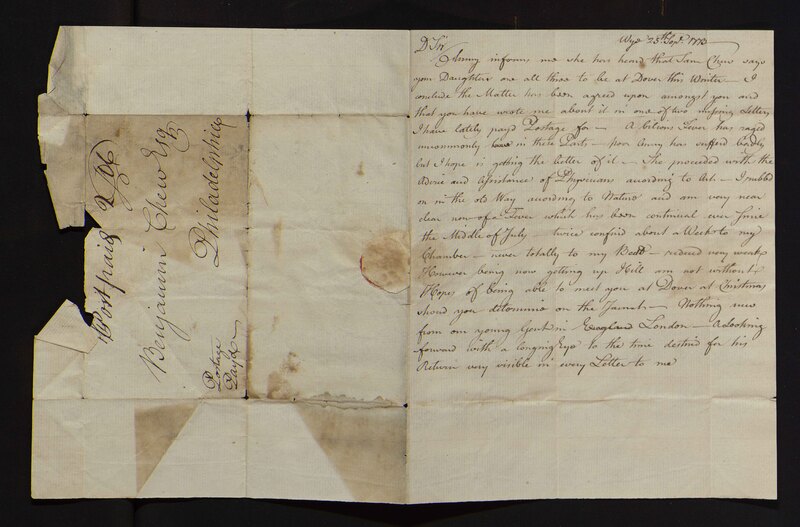 Postpaid 2/6
Benjamin Chew Esqr
Philadelphia
Postage
Payd
Wye 25th Sepr. 1773
D Sir
Anny informs me she has heard that Sam Chew says
your Daughters are all three to be at Dover this Winter — I
conclude the Matter has been agreed upon amongst you and
that you have wrote me about it in one of two missing Letters
I have lately payd Postage for — A bilious Fever has raged
uncommonly in these Parts — poor Anny has sufferd badly
but I hope is getting the better of it — She proceeded with the
Advice and Assistance of Physicians according to Art — I rubbed
on in the old Way according to Nature and am very near
clear now of a Fever which has been continual ever since
the Middle of July — twice confind about a Week to my
Chamber — never totally to my Bed — reduced very weak
However being now getting up Hill am not without
Hopes of being able to meet you at Dover at Christmas
shoud you determine on the Journey — Nothing new
from our young Gent in London — A looking
forward with a longing Eye to the time destind for his
Return very visible in every Letter to me